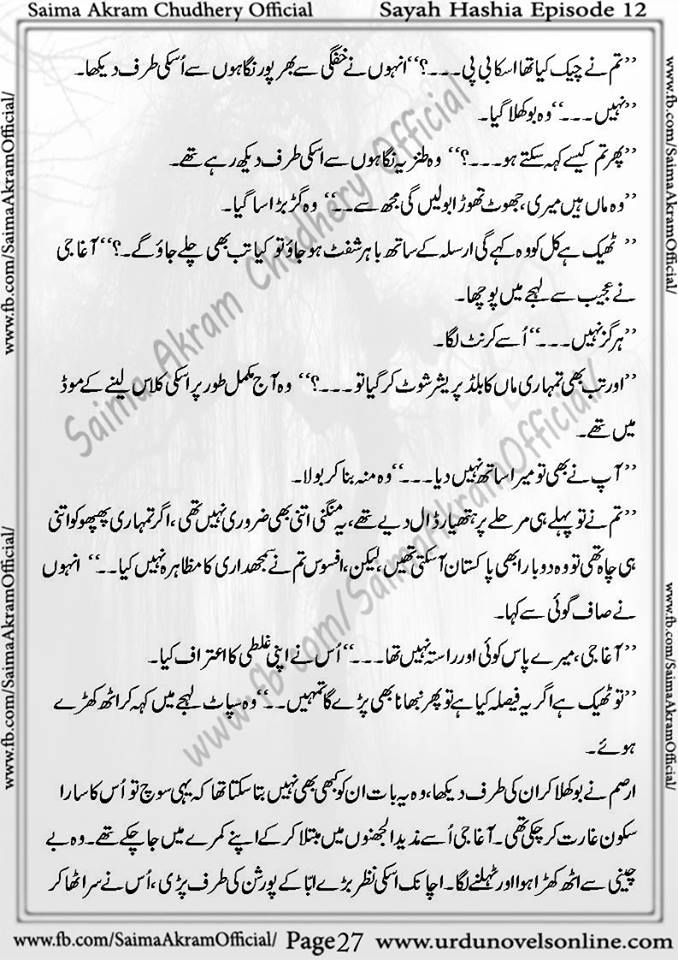 Saima Akram Chudhery Official
Sayah Hashia Episode 12
’’تم نے چیک کیا تھا اسکا بی پی۔۔۔؟‘‘ انہوں نے خفگی سے بھر پور نگاہوں سے اُسکی طرف دیکھا۔
’’نہیں۔۔۔‘‘ وہ بوکھلا گیا۔
’’پھر تم کیسے کہہ سکتے ہو۔۔۔؟‘‘ وہ طنزیہ نگاہوں سے اسکی طرف دیکھ رہے تھے۔
’’وہ ماں ہیں میری، جھوٹ تھوڑا بولیں گی مجھ سے۔۔‘‘ وہ گڑبڑا سا گیا۔
’’ ٹھیک ہے کل کو وہ کہے گی ارسلہ کے ساتھ باہر شفٹ ہو جاؤ تو کیا تب بھی چلے جاؤ گے۔؟‘‘ آغا جی
نے عجیب سے لہجے میں پوچھا۔
’’ہرگز نہیں۔۔۔‘‘ اُسے کرنٹ لگا۔
’’اور تب بھی تمہاری ماں کا بلڈ پریشر شوٹ کر گیا تو۔۔۔؟‘‘ وہ آج مکمل طور پر اسکی کلاس لینے کے موڈ
میں تھے۔
’’آپ نے بھی تو میرا ساتھ نہیں دیا۔۔۔‘‘ وہ منہ بنا کر بولا۔
’’تم نے تو پہلے ہی مرحلے پر ہتھیار ڈال دیے تھے، یہ منگنی اتنی بھی ضروری نہیں تھی، اگر تمہاری پھپھو کو اتنی
ہی چاہ تھی تو وہ دوبارا بھی پاکستان آسکتی تھیں، لیکن، افسوس تم نے سمجھداری کا مظاہرہ نہیں کیا۔۔‘‘ انہوں
نے صاف گوئی سے کہا۔
’’آغا جی، میرے پاس کوئی اور راستہ نہیں تھا۔۔۔‘‘ اُس نے اپنی غلطی کا اعتراف کیا۔
’’تو ٹھیک ہے اگر یہ فیصلہ کیا ہے تو پھر نبھانا بھی پڑے گا تمہیں۔۔‘‘ وہ سپاٹ لہجے میں کہہ کر اٹھ کھڑے
ہوئے۔
ارصم نے بوکھلا کر ان کی طرف دیکھا، وہ یہ بات ان کو کبھی بھی نہیں بتا سکتا تھا کہ یہی سوچ تو اُس کا سارا
سکون غارت کر چکی تھی۔ آغا جی اُسے مذید الجھنوں میں مبتلا کر کے اپنے کمرے میں جا چکے تھے۔ وہ بے
چینی سے اٹھ کھڑا ہوا اور ٹہلنے لگا۔ اچانک اسکی نظر بڑے ابّا کے پورشن کی طرف پڑی، اُس نے سر اٹھا کر
www.fb.com/SaimaAkramOfficial/
www.fb.com/SaimaAkramOfficial/
www.fb.com/SaimaAkramOfficial/
www.fb.com/SaimaAkramOfficial/
Saima Akram Chudhery Official
www.fb.com/SaimaAkramOfficial/
www.fb.com/SaimaAkramOfficial/ Page27 www.urdunovelsonline.com